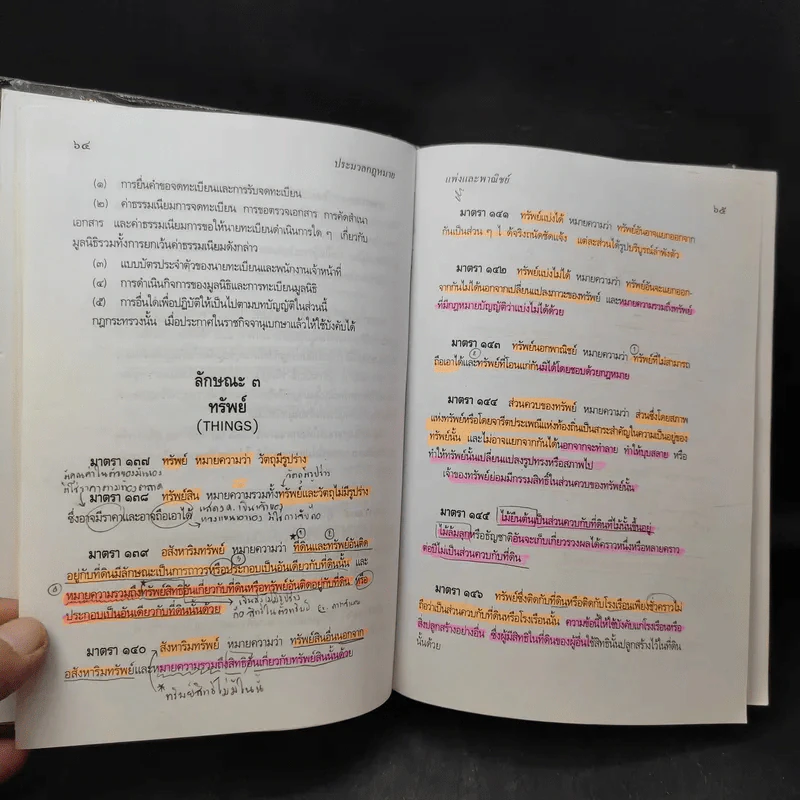 ๖๔
ประมวลกฎหมาย
(๑) การยื่นคำขอจดทะเบียนและการรับจดทะเบียน
(๒) ค่าธรรมเนียมการจดทะเบียน การขอตรวจเอกสาร การคัดสำเนา
เอกสาร และค่าธรรมเนียมการขอให้นายทะเบียนดำเนินการใด ๆ เกี่ยวกับ
มูลนิธิรวมทั้งการยกเว้นค่าธรรมเนียมดังกล่าว
(๓) แบบบัตรประจำตัวของนายทะเบียนและพนักงานเจ้าหน้าที่
(๔) การดำเนินกิจการของมูลนิธิและการทะเบียนมูลนิธิ
(๕) การอื่นใดเพื่อปฏิบัติให้เป็นไปตามบทบัญญัติในส่วนนี้
กฎกระทรวงนั้น เมื่อประกาศในราชกิจจานุเบกษาแล้วให้ใช้บังคับได้
ลักษณะ ๓
ทรัพย์
(THINGS)
มาตรา ๑๓๗ ทรัพย์ หมายความว่า วัตถุมีรูปร่าง
มาตรา ๑๓๘ ทรัพย์สิน หมายความรวมทั้งทรัพย์และวัตถุไม่มีรูปร่าง
ซึ่งอาจมีราคาและอาจถือเอาได้
มาตรา ๑๓๙ อสังหาริมทรัพย์ หมายความว่า ที่ดินและทรัพย์อันติด
อยู่กับที่ดินมีลักษณะเป็นการถาวรหรือประกอบเป็นอันเดียวกับที่ดินนั้น และ
หมายความรวมถึงทรัพยสิทธิอันเกี่ยวกับที่ดินหรือทรัพย์อันติดอยู่กับที่ดิน หรือ
ประกอบเป็นอันเดียวกับที่ดินนั้นด้วย
มาตรา ๑๔๐ สังหาริมทรัพย์ หมายความว่า ทรัพย์สินอื่นนอกจาก
อสังหาริมทรัพย์และหมายความรวมถึงสิทธิอันเกี่ยวกับทรัพย์สินนั้นด้วย
*ทรัพย์สิทธิไม่มีในนี้
แพ่งและพาณิชย์
๖๕
มาตรา ๑๔๑ ทรัพย์แบ่งได้ หมายความว่า ทรัพย์อันอาจแยกออกจาก
กันเป็นส่วน ๆ ได้จริงถนัดชัดแจ้ง แต่ละส่วนได้รูปบริบูรณ์ลำพังตัว
มาตรา ๑๔๒ ทรัพย์แบ่งไม่ได้ หมายความว่า ทรัพย์อันจะแยกออก
จากกันไม่ได้นอกจากเปลี่ยนแปลงภาวะของทรัพย์ และหมายความรวมถึงทรัพย์
ที่มีกฎหมายบัญญัติว่าแบ่งไม่ได้ด้วย
มาตรา ๑๔๓ ทรัพย์นอกพาณิชย์ หมายความว่า ทรัพย์ที่ไม่สามารถ
ถือเอาได้และทรัพย์ที่โอนแก่กันมิได้โดยชอบด้วยกฎหมาย
มาตรา ๑๔๔ ส่วนควบของทรัพย์ หมายความว่า ส่วนซึ่งโดยสภาพ
แห่งทรัพย์หรือโดยจารีตประเพณีแห่งท้องถิ่นเป็นสาระสำคัญในความเป็นอยู่ของ
ทรัพย์นั้น และไม่อาจแยกจากกันได้นอกจากจะทำลาย ทำให้บุบสลาย หรือ
ทำให้ทรัพย์นั้นเปลี่ยนแปลงรูปทรงหรือสภาพไป
เจ้าของทรัพย์ย่อมมีกรรมสิทธิ์ในส่วนควบของทรัพย์นั้น
มาตรา ๑๔๕ ไม้ยืนต้นเป็นส่วนควบกับที่ดินที่ไม้นั้นขึ้นอยู่
ไม้ล้มลุกหรือธัญชาติอันจะเก็บเกี่ยวรวงผลได้คราวหนึ่งหรือหลายคราว
ต่อปีไม่เป็นส่วนควบกับที่ดิน
มาตรา ๑๔๖ ทรัพย์ซึ่งติดกับที่ดินหรือติดกับโรงเรือนเพียงชั่วคราวไม่
ถือว่าเป็นส่วนควบกับที่ดินหรือโรงเรือนนั้น ความข้อนี้ให้ใช้บังคับแก่โรงเรือนหรือ
สิ่งปลูกสร้างอย่างอื่น ซึ่งผู้มีสิทธิในที่ดินของผู้อื่นใช้สิทธินั้นปลูกสร้างไว้ในที่ดิน
นั้นด้วย